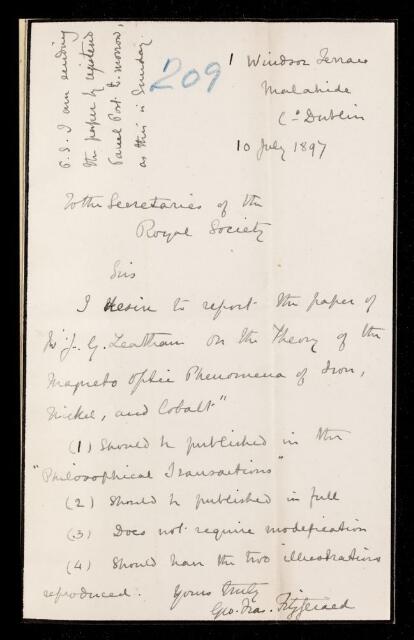 P.S. I am sending
the paper by registered
Parcel Post to-morrow,
as this is Sunday.
209
1 Windsor Terrace
Malahide
Co. Dublin
10 July 1897
To the Secretaries of the
Royal Society
Sirs
I desire to report the paper of
Mr J. G. Leatham on the Theory of the
Magneto Optic Phenomena of Iron,
Nickel, and Cobalt"
(1) Should be published in the
"Philosophical Transactions"
(2) Should be published in full
(3) Does not require modification
(4) Should have the two illustrations
reproduced. Yours truly
Geo. Fras. Fitzgerald